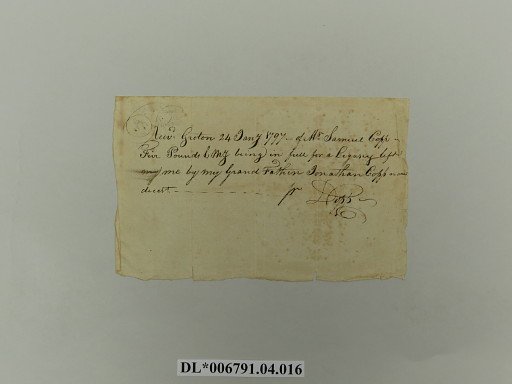 Recvd Groton 24 Jany 1797 - of Mr. Samuel Copp -
Five Pounds L My being in full for a Legacy left
my me by my Grand Father Jonathan Copp
decest. - - - - - pr D Copp
DL*006791.04.016